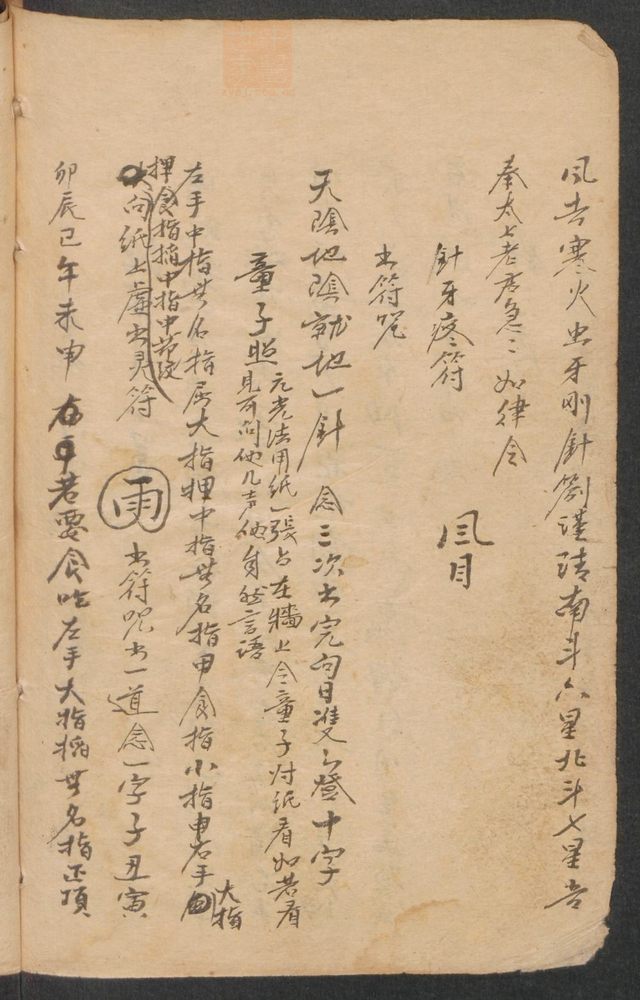 風吉寒火虫牙刚針劄謹请南斗六星北斗七星吾
奉太上老君急二如律令
針牙疼符
風目
书符咒
天陰地陰就地一針 念三次书完向日雙二登十字
童子照 元光法用纸一張占在牆上令童子对纸看如若看
見可问他几声他自然言语
左手中指無名指屈大指押中指無名指甲食指小指申右手大指
押食指稍中指中节纹
向纸上虚书灵符 雨 书符咒书一道念一字子丑寅
卯辰巳午未申 右手若要食吃左手大指稍無名指正項